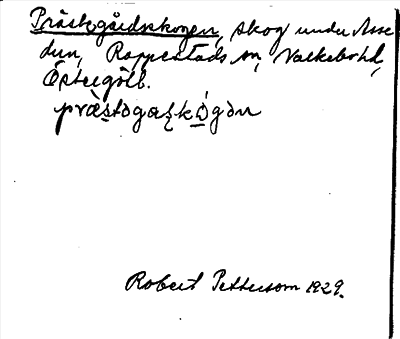 Prästgårdsskogen, skog under Asse
dun, Rappestads sn, Valkebo hd,
Östergötl.
Robert Pettersson 1929.